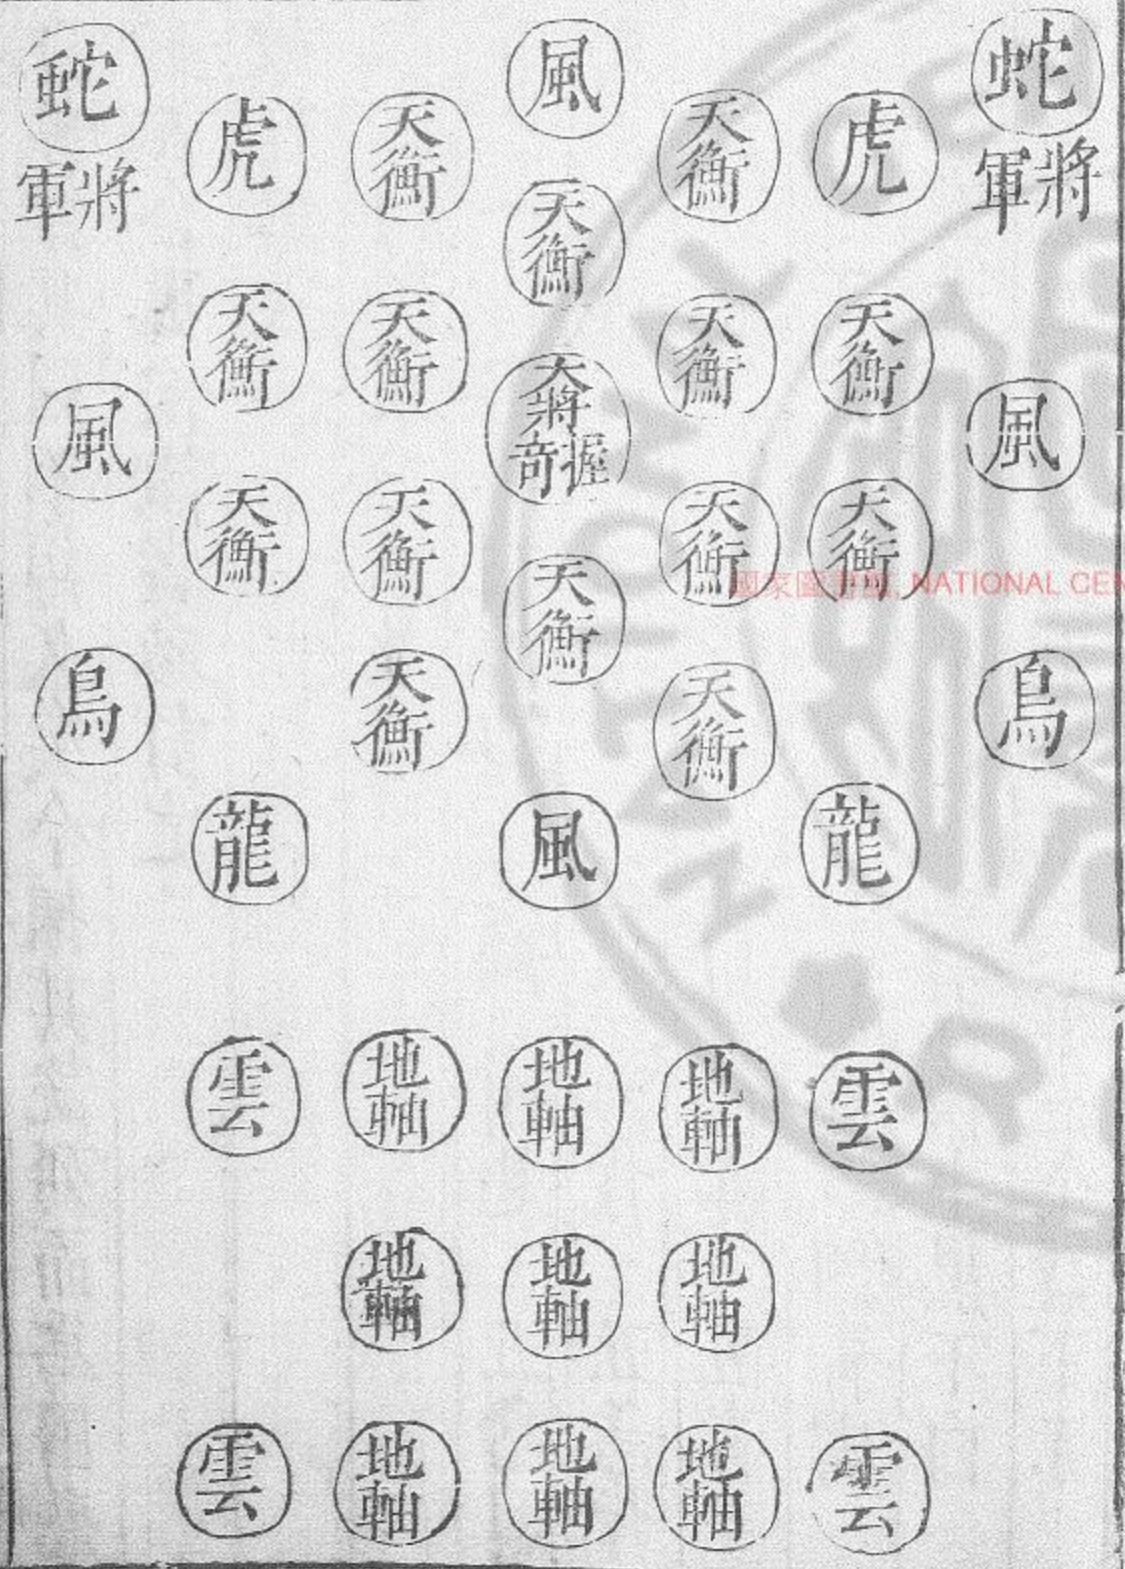 蛇
將軍
風
鳥
虎
天衡
天衡
龍
雲
雲
天衡
天衡
天衡
天衡
地軸
地軸
地軸
風
天衡
大將握奇
天衡
風
地軸
地軸
地軸
天衡
天衡
天衡
天衡
地軸
地軸
地軸
虎
天衡
天衡
龍
雲
雲
蛇
將軍
風
鳥
國家圖書館, NATIONAL CEN